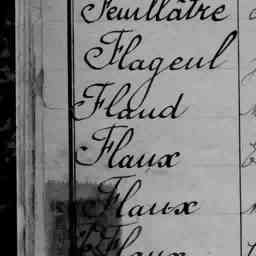 Feuillâtre
Flageul
Flaud
Flaux
Flaux
Flaux